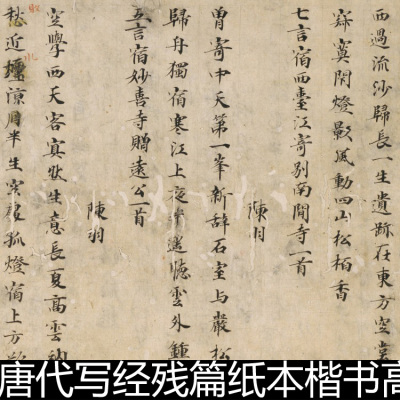 西過流沙歸長一生遺跡在東方空堂
寂寞閇燈影風動四山松栢香
七言宿西臺江寄别南閒寺一首
陳羽
曾寄中天第一峯新辞石室与巖松
歸舟獨宿寒江上夜半遥聴雲外鍾
五言宿妙善寺贈遠公一首
陳羽
空學西天客冥狀生意長夏高雲
愁近壇涼月半生孤燈宿上方
唐代写经残篇纸本楷书高